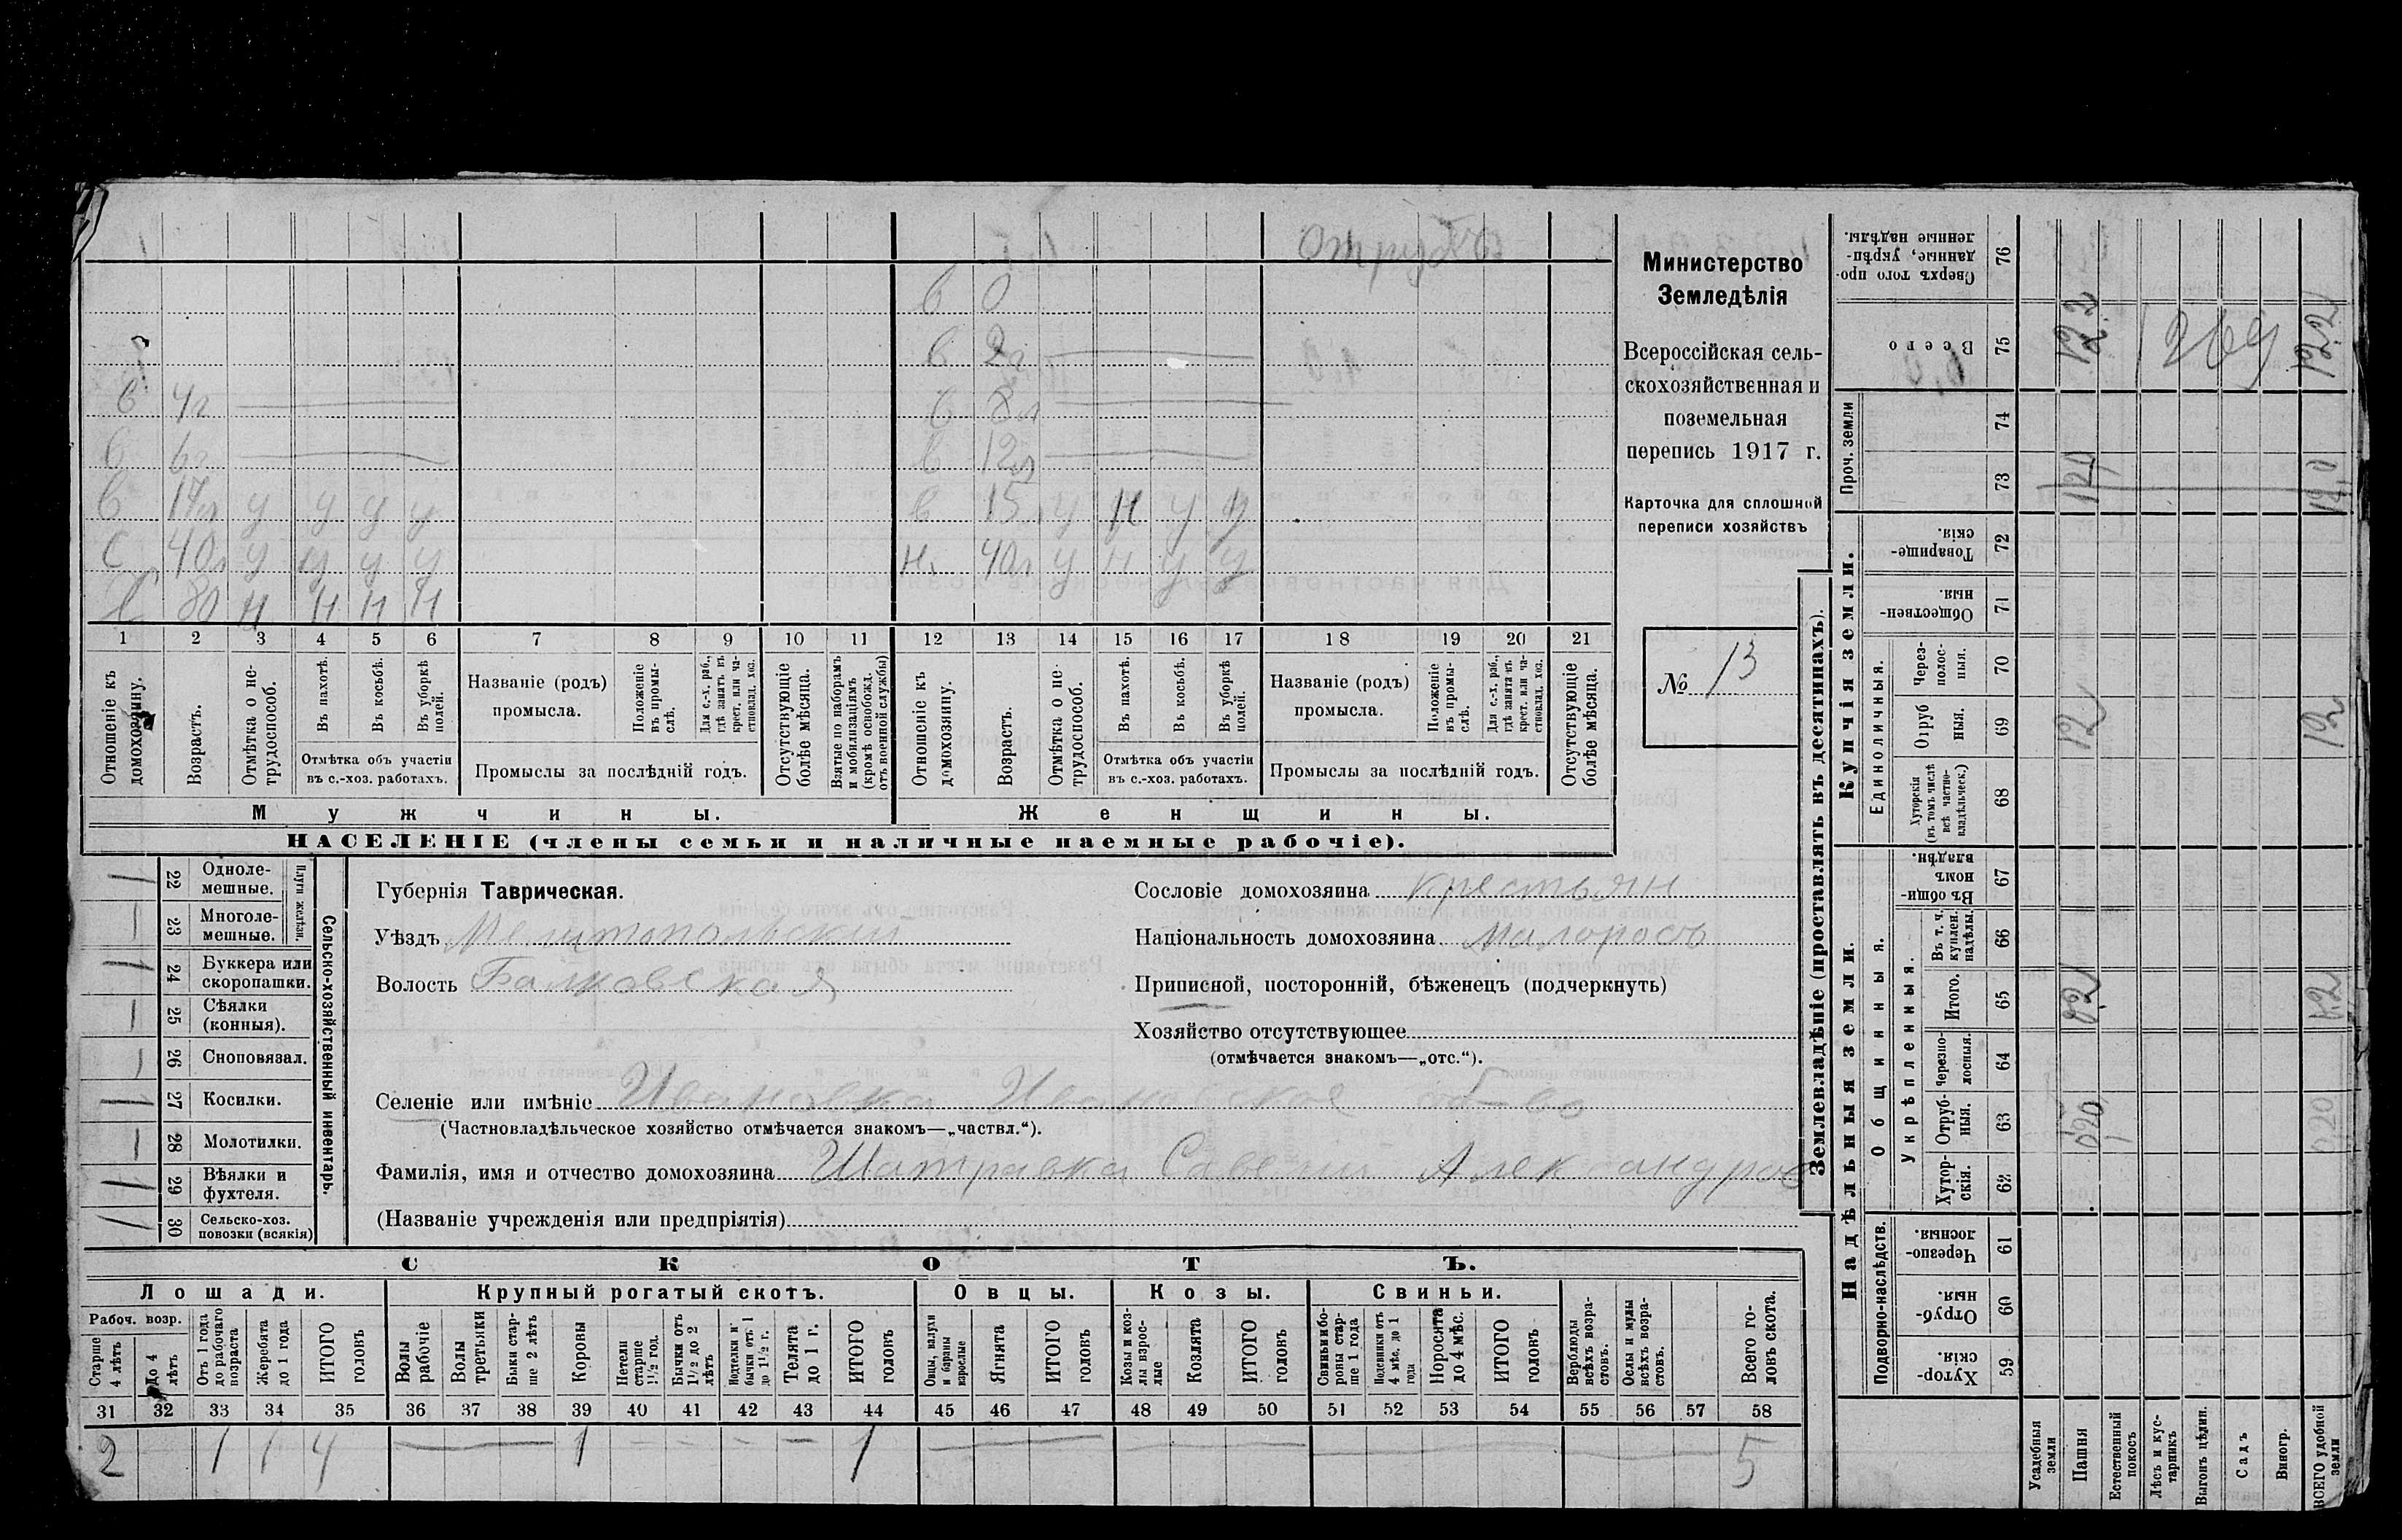 Отруба
в 0
в 2г
в 4г в 8л
в 6г в 12л
в 17л у у у у в 15л у н у у
с 40л у у у у н. 40л у н у у
80 н н н н
1 2 3 4 5 6 7 8 9 10 11 12 13 14 15 16 17 18 19 20 21
Отношеніе къ домохозяину.
Возрастъ.
Отмѣтка о нетрудоспособ.
Въ пахотѣ.
Въ косьбѣ.
Въ уборкѣ полей.
Отмѣтка объ участіи въ с.-хоз. работахъ.
Названіе (родъ) промысла.
Положеніе въ промыслѣ.
Для с.-х. раб., гдѣ занятъ въ крест. или частновлад. хоз.
Промыслы за послѣдній годъ.
Отсутствующіе болѣе мѣсяца.
Взятые по наборамъ и мобилизаціямъ (кромѣ освобожд. отъ военной службы)
Отношеніе къ домохозяину.
Возрастъ.
Отмѣтка о нетрудоспособ.
Въ пахотѣ.
Въ косьбѣ.
Въ уборкѣ полей.
Отмѣтка объ участіи въ с.-хоз. работахъ.
Названіе (родъ) промысла.
Положеніе въ промыслѣ.
Для с.-х. раб., гдѣ занята въ крест. или частновлад. хоз.
Промыслы за послѣдній годъ.
Отсутствующіе болѣе мѣсяца.
Мужчины. Женщины.
НАСЕЛЕНІЕ (члены семьи и наличные наемные рабочіе).
Министерство
Земледѣлія
Всероссійская сель-
скохозяйственная и
поземельная
перепись 1917 г.
Карточка для сплошной
переписи хозяйствъ
№ 13
22 Одноле-мешные.
23 Многоле-мешные.
Плуги желѣзн.
24 Буккера или скоропашки.
25 Сѣялки (конныя).
26 Сноповязал.
27 Косилки.
28 Молотилки.
29 Вѣялки и фухтеля.
30 Сельско-хоз. повозки (всякія)
Сельско-хозяйственный инвентарь.
Губернія Таврическая.
Уѣздъ Мелитопольскій
Волость Балковская
Сословіе домохозяина крестьян
Національность домохозяина малоросъ
Приписной, посторонній, бѣженецъ (подчеркнуть)
Хозяйство отсутствующее
(отмѣчается знакомъ—„отс.“).
Селеніе или имѣніе Ивановка Ивановское об-во
(Частновладѣльческое хозяйство отмѣчается знакомъ—„частвл.“).
Фамилія, имя и отчество домохозяина Шатравка Савелий Александров
(Названіе учрежденія или предпріятія)
СКОТЪ.
Лошади. Крупный рогатый скотъ. Овцы. Козы. Свиньи.
Рабоч. возр.
Старше 4 лѣтъ
До 4 лѣтъ
Отъ 1 года до рабочаго возраста
Жеребята до 1 года
ИТОГО головъ
Волы рабочіе
Волы третьяки
Быки старше 2 лѣтъ
Коровы
Нетели старше 1½ год.
Бычки отъ 1½ до 2 лѣтъ
Подтелки и бычки отъ 1 до 1½ г.
Телята до 1 г.
ИТОГО головъ
Овцы, валухи и бараны взрослые
Ягнята
ИТОГО головъ
Козы и козлы взрослые
Козлята
ИТОГО головъ
Свиньи и боровы старше 1 года
Подсвинки отъ 4 мѣс. до 1 года
Поросята до 4 мѣс.
ИТОГО головъ
Верблюды всѣхъ возрастовъ.
Ослы и мулы всѣхъ возрастовъ.
Всего головъ скота.
31 32 33 34 35 36 37 38 39 40 41 42 43 44 45 46 47 48 49 50 51 52 53 54 55 56 57 58
2 1 1 4 1 1 5
Землевладѣніе (проставлять въ десятинахъ).
Сверхъ того проданные, укрѣпленные надѣлы. 76
Всего 75 122 1269 122
Проч. земли
74
73 120 120
Купчія земли.
Товарищескія. 72
Общественныя. 71
Единоличныя.
Черезполосныя. 70
Отрубныя. 69 12 12
Хуторскія (въ томъ числѣ всѣ частновладѣльческ.) 68
Надѣльныя земли.
Общинныя.
Въ общинномъ владѣн. 67
Укрѣпленныя.
Въ т. ч. куплен. надѣлы. 66
Итого. 65
Черезполосныя. 64
Отрубныя. 63
Хуторскія. 62
Подворно-наслѣдств.
Черезполосныя 61
Отрубныя. 60
Хуторскія. 59
Усадебныя земли
Пашня
Естественный покосъ
Лѣсъ и кустарникъ
Выгонъ цѣлин.
Садъ
Виногр.
ВСЕГО удобной земли